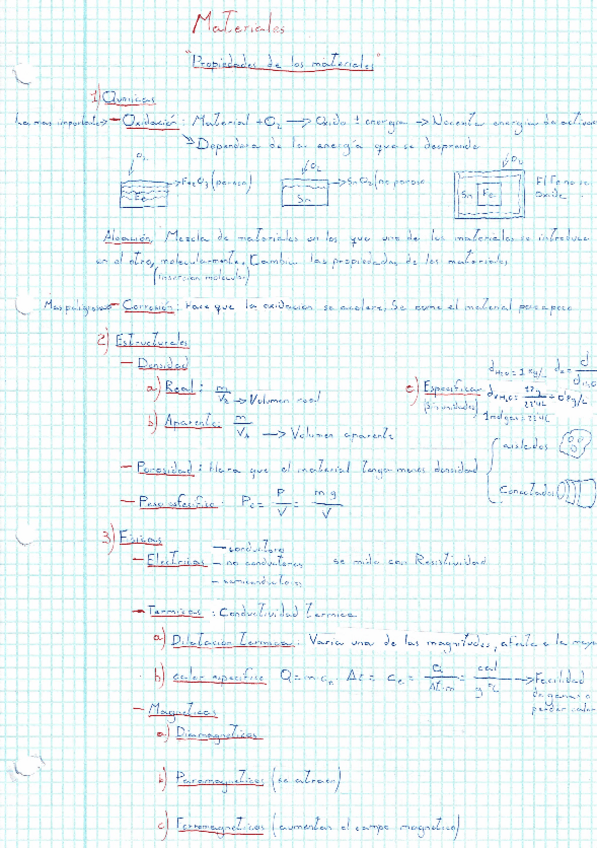 Materiales
"Propiedades de los materiales"
1) Químicas
Las mas importantes → - Oxidación: Material + O2 → Óxido ± energía → Necesita energía de activac
→ Dependera de la energía que se desprende
O2 O2 O2
→ Fe2O3 (poroso) → SnO2 (no poroso El Fe no se
Fe Sn Sn Fe oxida
Aleación: Mezcla de materiales en los que uno de los materiales se introduce
en el otro, molecularmente. Cambia las propiedades de los materiales
(Inserción molecular)
Mas peligroso - Corrosión: Hace que la oxidacion se acelere. Se come el material poco a poco
2) Estructurales
- Densidad
a) Real: m/VR → Volumen real
b) Aparente: m/VA → Volumen aparente
c) Específica (Sin unidades)
dH2O = 1 kg/L
1 mol gas = 22'4L
- Porosidad: Hara que el material tenga menos densidad
aislados
Conectados
- Peso esfecifico: Pe = P/V = mg/V
3) Físicas
- Electricas - conductora
- no conductoras se mide con Resistividad
- semiconductores
- Termicas: Conductividad termica
a) Dilatación termica: Varia una de las magnitudes, afecta a la mayo
b) calor especifico Q = m·ce·Δt = ce = Q/Δt·m = cal/g ºC → Facilidad
de ganar o
perder calor
- Magneticas
a) Diamagneticos
b) Paramagneticos (se atraen)
c) Ferromagneticos (aumentan el campo magnetico)